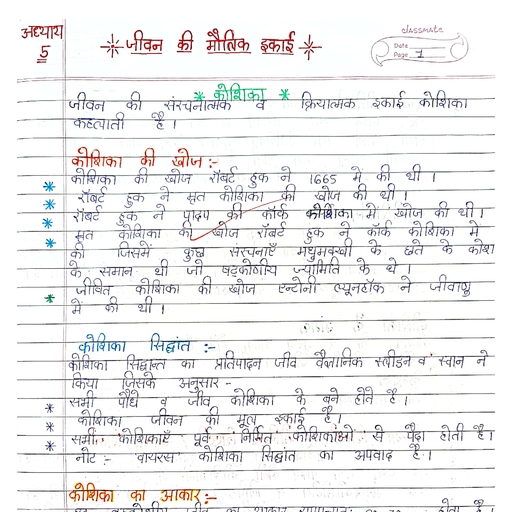 अध्याय
5
जीवन की मौलिक इकाई
classmate
Date
Page 1
* कोशिका *
जीवन की संरचनात्मक व क्रियात्मक इकाई कोशिका
कहलाती है ।
कोशिका की खोज :-
* कोशिका की खोज रॉबर्ट हुक ने 1665 मे की थी ।
* रॉबर्ट हुक ने मृत कोशिका की खोज की थी ।
* रॉबर्ट हुक ने पादप की कॉर्क कोशिका में खोज की थी ।
* मृत कोशिका की खोज रॉबर्ट हुक ने कॉर्क कोशिका मे
की जिसमें कुछ संरचनाएँ मधुमक्खी के छते के कोश
के समान थी जो षट्कोणीय ज्यामिति के थे ।
* जीवित कोशिका की खोज एन्टोनी ल्यूनहॉक ने जीवाणु
में की थी ।
कोशिका सिद्वांत :-
कोशिका सिद्वान्त का प्रतिपादन जीव वैज्ञानिक स्लीडन व स्वान ने
किया जिसके अनुसार -
* सभी पौधे व जीव कोशिका के बने होते है ।
* कोशिका जीवन की मूल इकाई है ।
* सभी कोशिकाएँ पूर्व निर्मित कोशिकाओ से पैदा होती है ।
नोट :- वायरस कोशिका सिद्वांत का अपवाद है ।
कोशिका का आकार :-